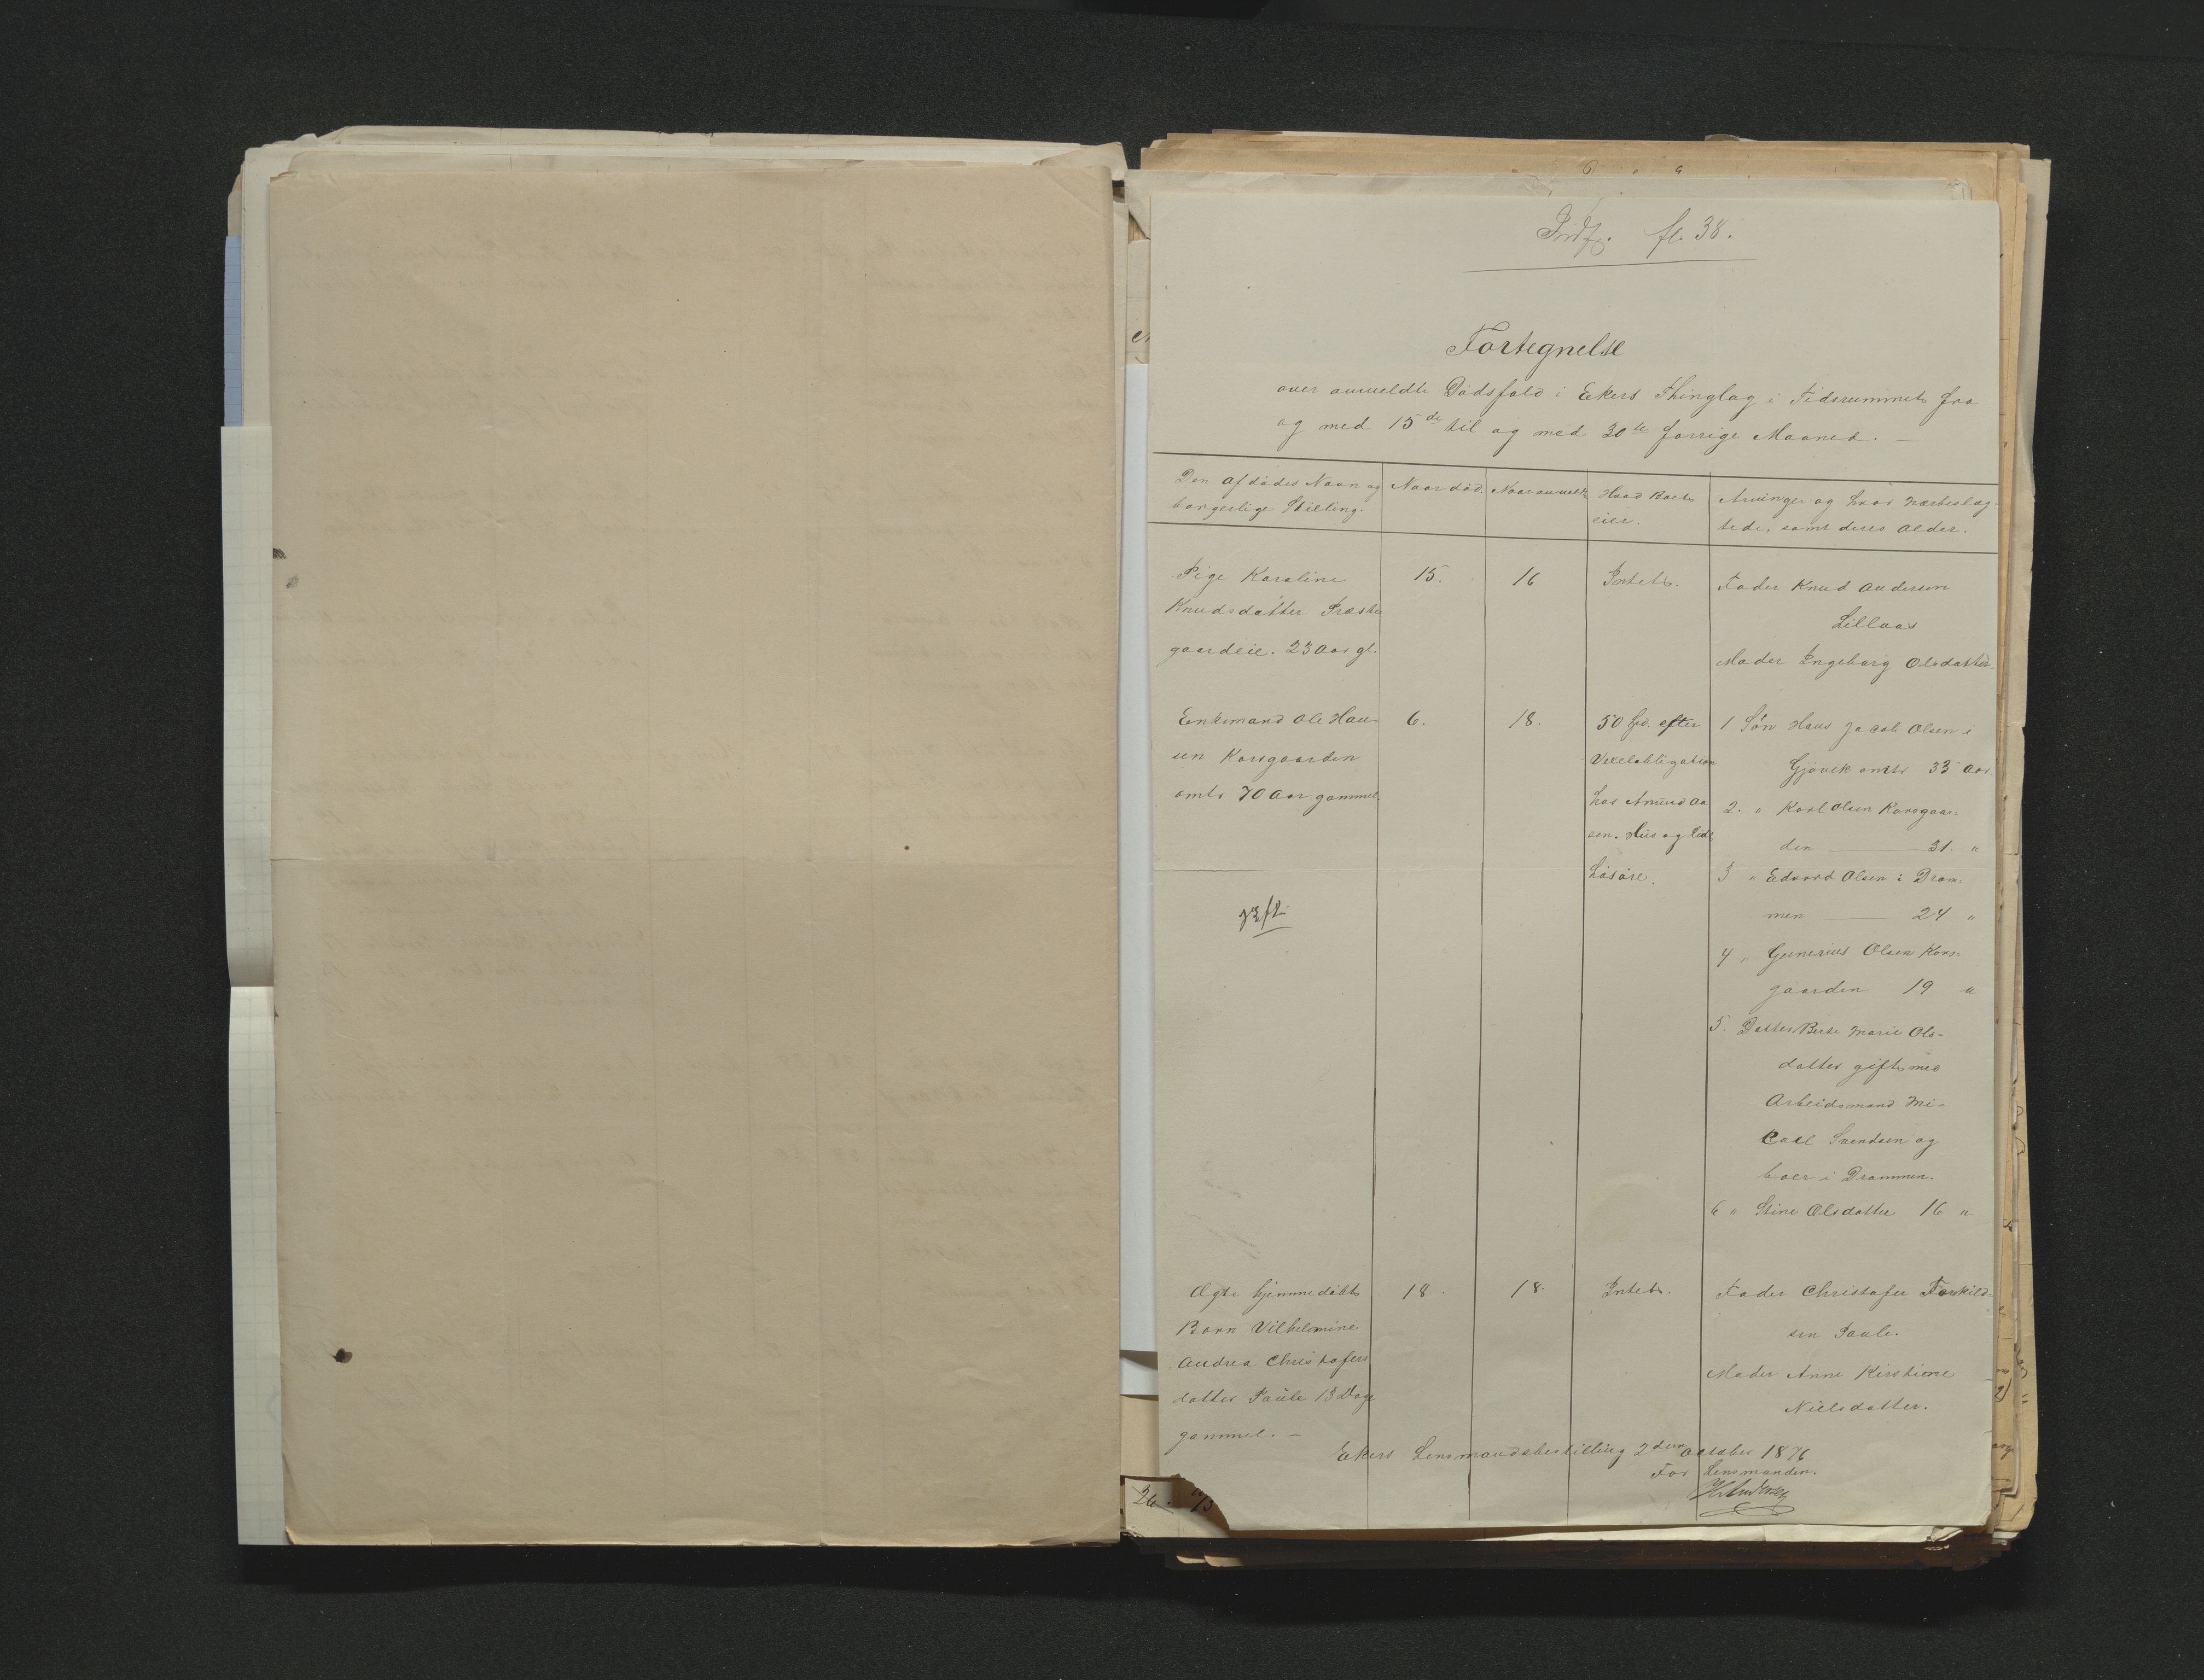 Indf. fl. 38.
Fortegnelse
over anmeldte Dødsfald i Ekers Thinglag i Tidsrummet fra
og med 15de til og med 30te forrige Maaned. —
Den afdødes Navn og
borgerlige Stilling.
Naar død.
Naar anmeldt
Hvad Boet
eier.
Arvinger og hvor nærbeslæg-
tede, samt deres Alder.
Pige Karoline
Knudsdatter Præste
gaardeie. 23 Aar gl.
15.
16
Intet.
Fader Knud Andersen
Lillaas
Moder Ingeborg Olsdatter.
Enkemand Ole Han-
sen Korsgaarden
omtr 70 Aar gammel.
6.
18.
50 Spd. efter
Vexelobligation
hos Amund Aa
sen. Hus og lidt
Løsøre.
1 Søn Hans Jacob Olsen i
Gjøvik omtr 33 Aar
2. " Karl Olsen Korsgaar-
den — 31. "
3 " Edvard Olsen i Dram-
men — 24 "
4 " Gunerius Olsen Kors-
gaarden 19 "
5. Datter Berte Marie Ols-
datter gift med
Arbeidsmand Mi-
cael Svendsen og
boer i Drammen.
6 " Stine Olsdatter 16 "
Ægte hjemmedøbt
Barn Vilhelmine
Andrea Christofers
datter Paule 13 Dage
gammel. —
18.
18.
Intet.
Fader Christofer Torkild-
sen Paule.
Moder Anne Kirstiene
Nielsdatter.
Ekers Lensmandsbestilling 2den October 1876
For Lensmanden.
H. Andersen
26.